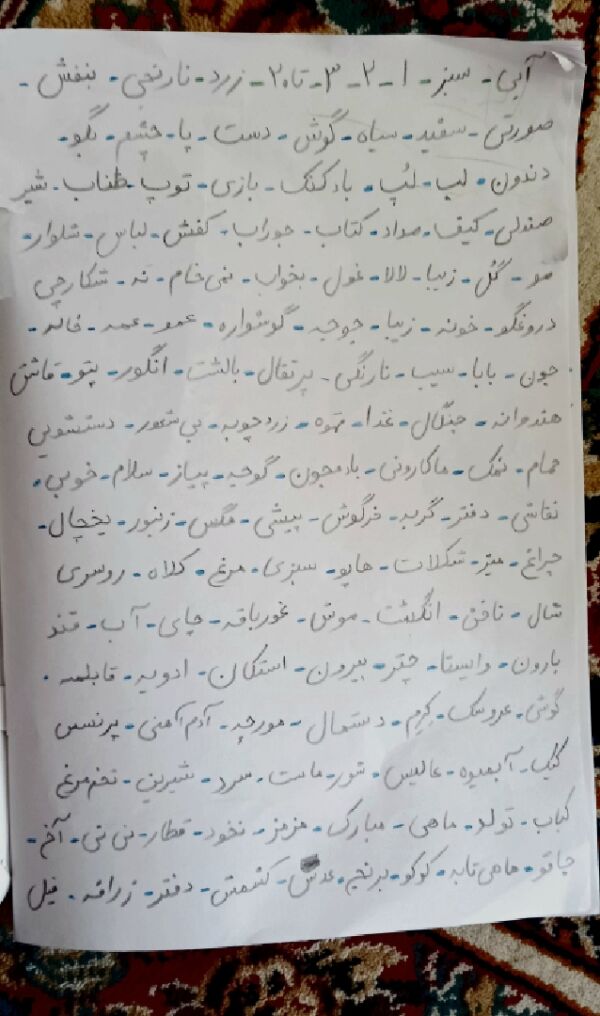 آبی - سبز - ۱ - ۲ - ۳ - تا ۲۰ - زرد - نارنجی - بنفش -
صورتی - سفید - سیاه - گوش - دست - پا - چشم - بگو -
دندون - لب - لپ - بادکنک - بازی - توپ - طناب - شیر
صندلی - کیف - مداد - کتاب - جوراب - کفش - لباس - شلوار -
مو - گل - زیبا - لالا - غول - بخواب - نمی خام - نه - شکارچی
دروغگو - خونه - زیبا - جوجه - گوشواره - عمو - عمه - خاله -
جون - بابا - سیب - نارنگی - پرتقال - بالشت - انگور - پتو - قاشق
هندوانه - چنگال - غذا - قهوه - زردچوبه - بی شعور - دستشویی
حمام - نمک - ماکارونی - بادمجون - گوجه - پیاز - سلام - خوبی -
نقاشی - دفتر - گربه - خرگوش - پیشی - مگس - زنبور - یخچال -
چراغ - میز - شکلات - هاپو - سبزی - مرغ - کلاه - روسری
شال - ناخن - انگشت - موش - غورباقه - چای - آب - قند
بارون - وایستا - چتر - بیرون - استکان - ادویه - قابلمه -
گوش - عروسک - کرم - دستمال - مورچه - آدم آهنی - پرنسس
کیک - آبمیوه - عالیس - شور - ماست - سرد - شیرین - تخم مرغ
کباب - تولد - ماهی - مبارک - قرمز - نخود - قطار - نی نی - آخ -
چاقو - ماهی تابه - کوکو - برنج - عدس - کشمش - دفتر - زرافه - فیل